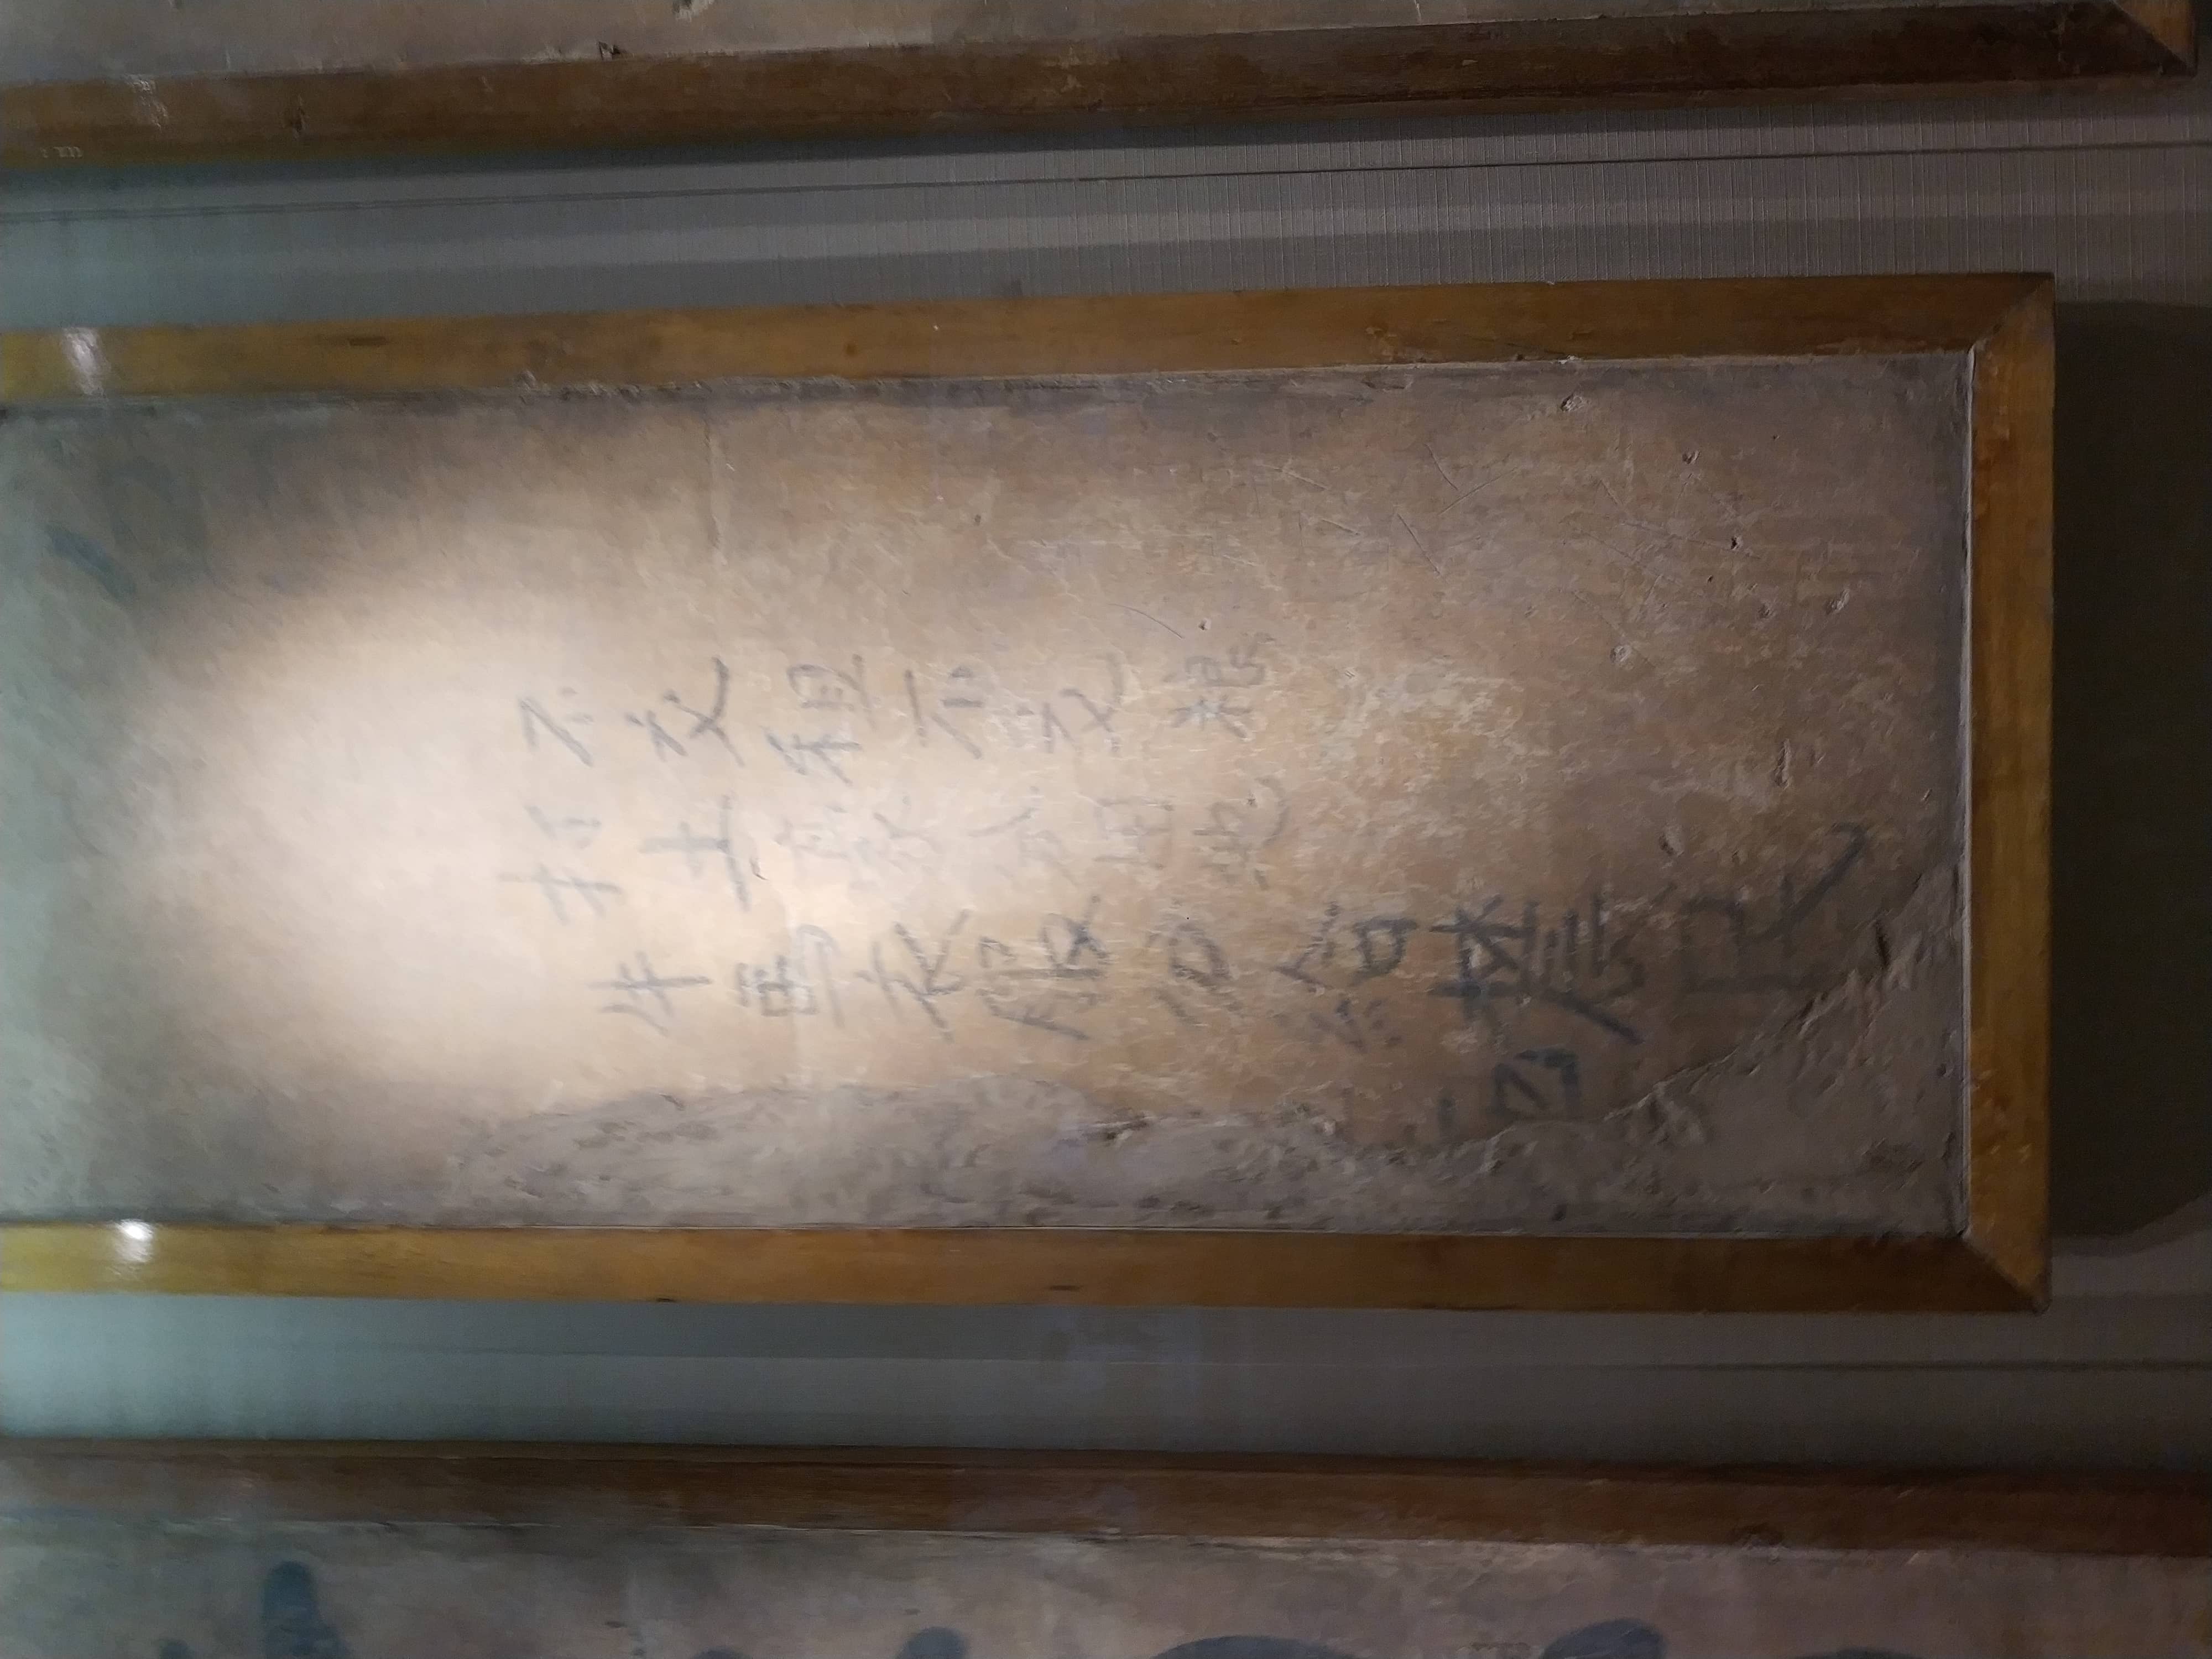 不交租不交粮
打土豪分田地
牛馬衣服分給農民